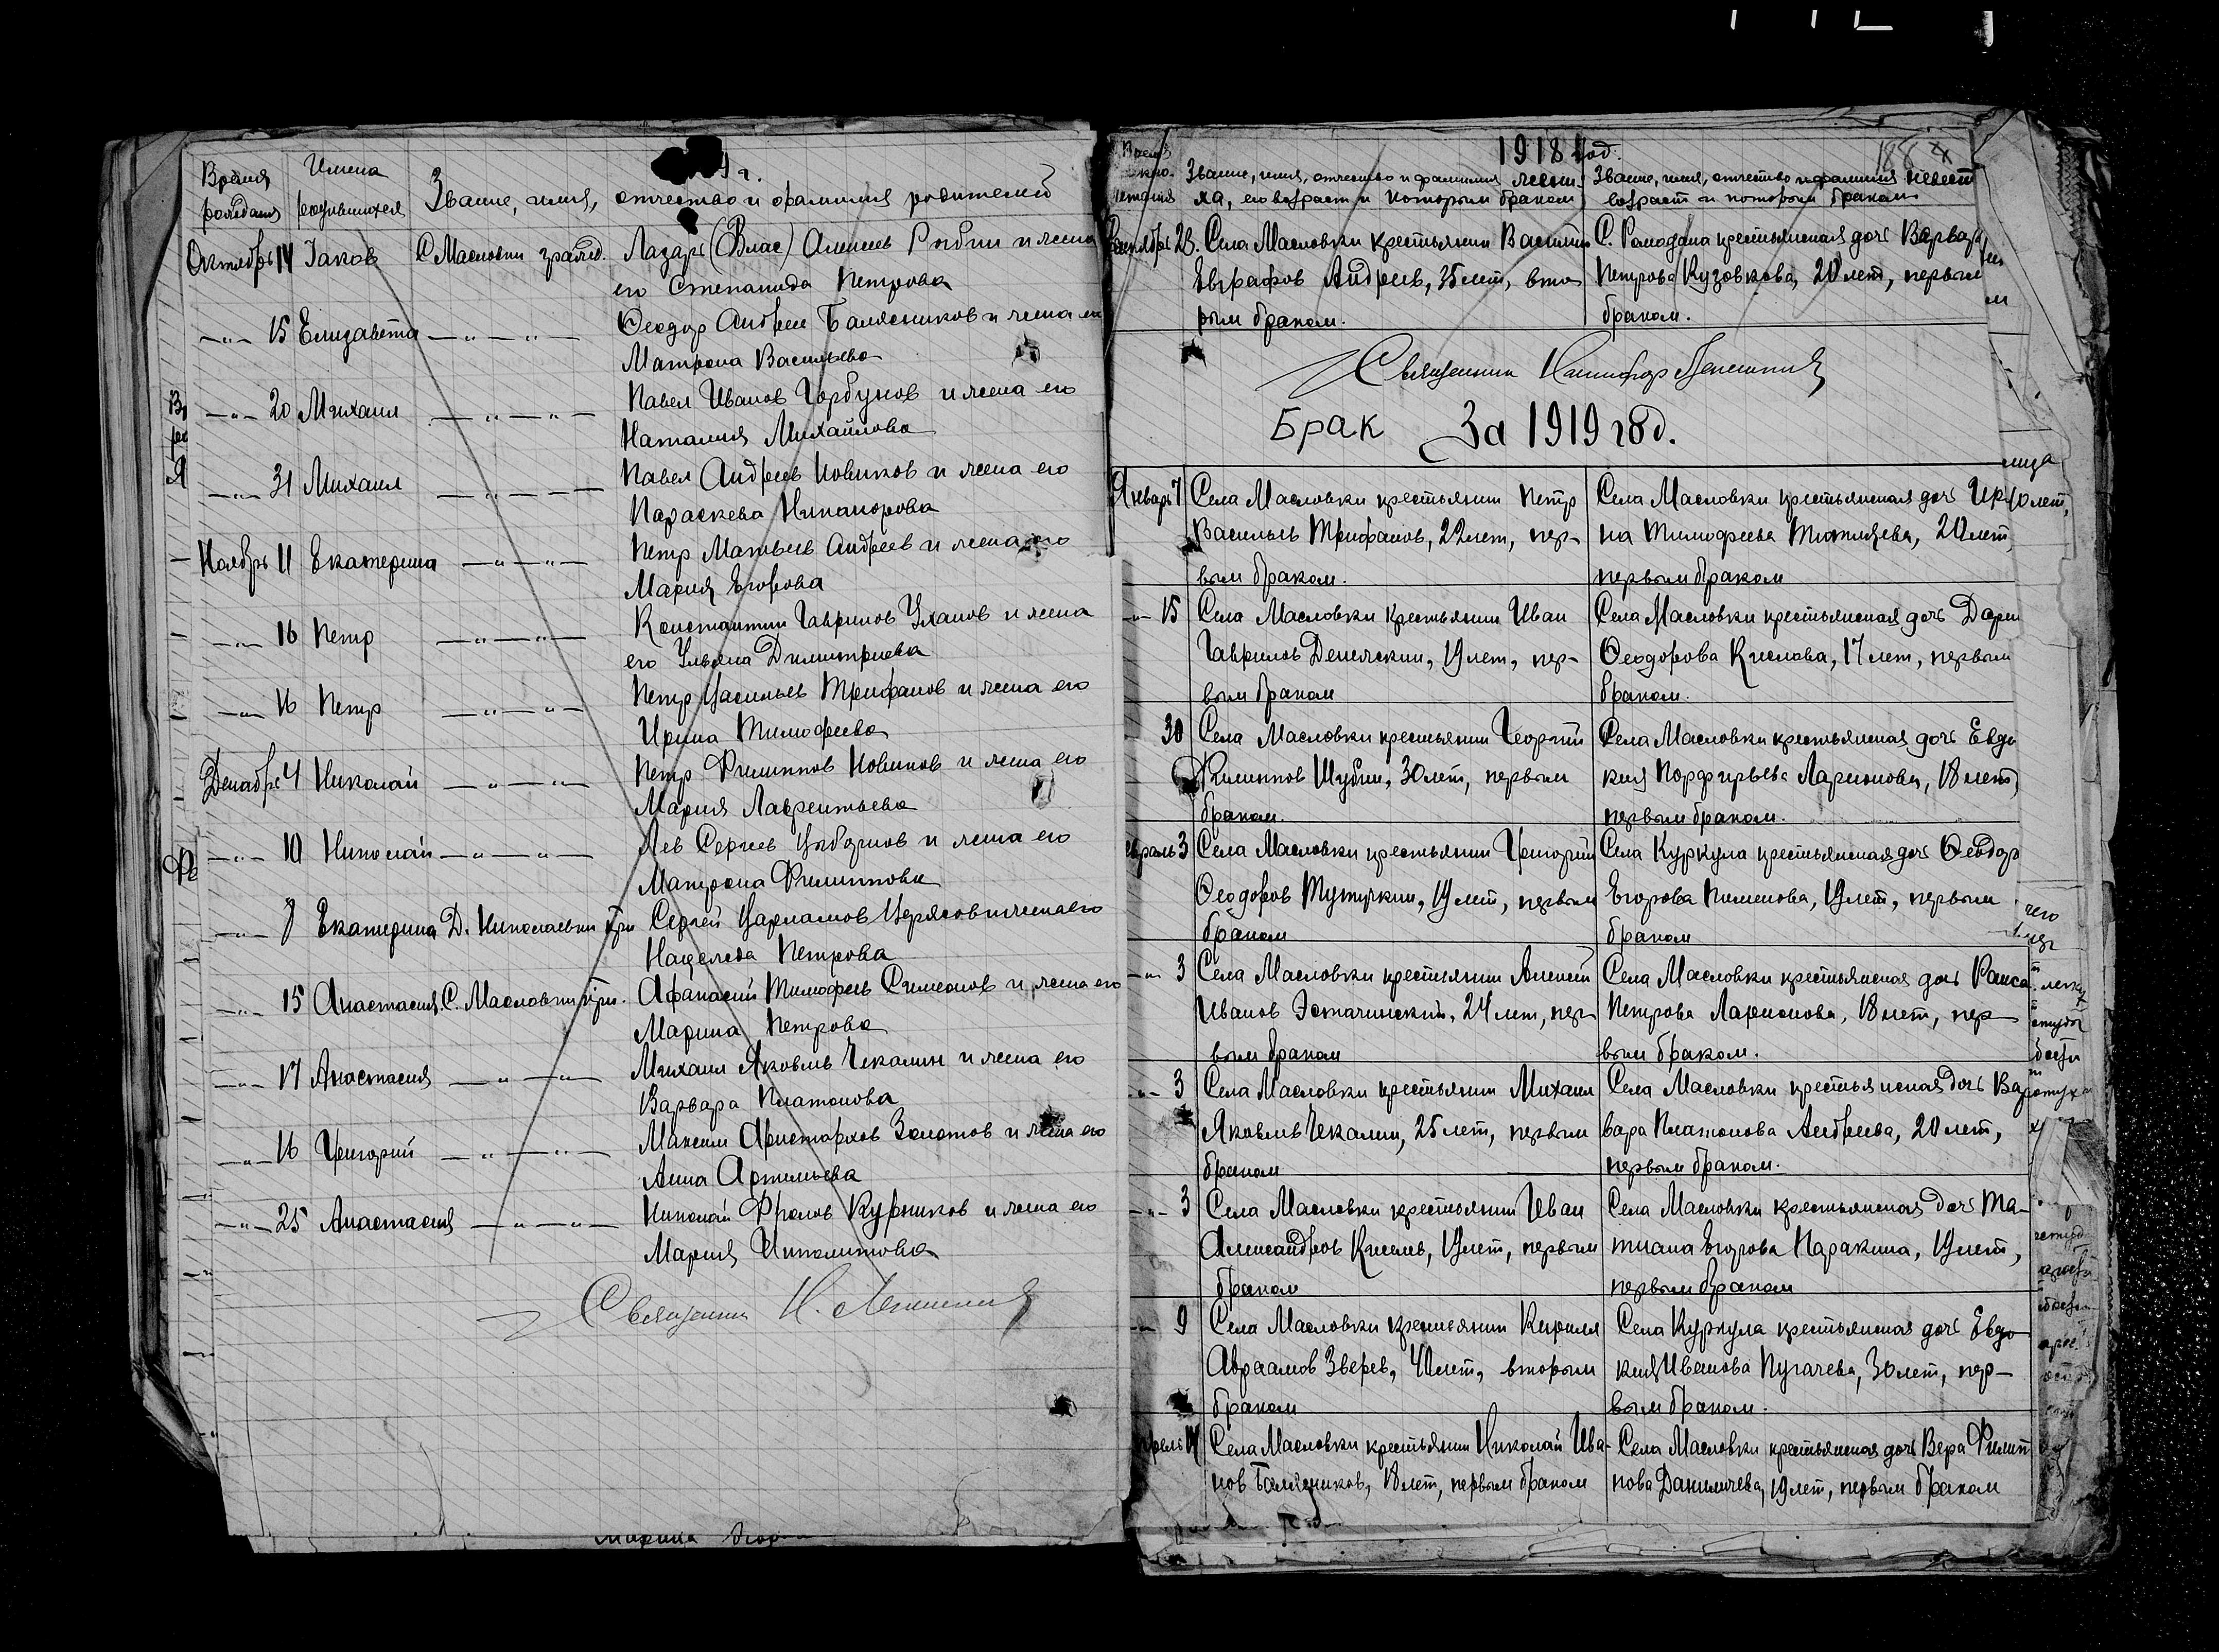 Время
рождения
Имена
родившихся
Звание, имя, отчество и фамилия родителей
г.
Октябрь 14 Iаков С. Масловки гражд. Лазарь (Влас) Алексеев и жена
его Степанида Петрова
—"— 15 Елизавета —"—"— Ѳеодор Андреев Балясников и жена его
Матрона Васильева
—"— 20 Михаил —"—"— Павел Иванов Горбунов и жена его
Наталия Михайлова
—"— 31 Михаил —"—"— Павел Андреев Новиков и жена его
Параскева Никанорова
Ноябрь 11 Екатерина —"—"— Петр Матвеев Андреев и жена его
Мария Егорова
—"— 16 Петр —"—"— Константин Гаврилов Уханов и жена
его Ульяна Димитриева
—"— 16 Петр —"—"— Петр Васильев Трифанов и жена его
Ирина Тимофеева
Декабрь 4 Николай —"—"— Петр Филиппов Новиков и жена его
Мария Лаврентьева
—"— 10 Николай —"—"— Лев Сергеев и жена его
Матрона Филиппова
—"— Екатерина Д. Николаевки гр. Сергей и жена его
Петрова
—"— 15 Анастасия С. Масловки гр. Афанасий Тимофеев Симеонов и жена его
Марина Петрова
—"— 17 Анастасия —"—"— Михаил Яковлев Чекалин и жена его
Варвара Платонова
—"— 16 Григорий —"—"— Максим Аристархов Золотов и жена его
Анна
—"— 25 Анастасия —"—"— Николай Фролов Курников и жена его
Мария Ипполитова
Священник Н.
1918 год.
Звание, имя, отчество и фамилия жени-
ха, его возраст и которым браком
Звание, имя, отчество и фамилия невест
возраст и которым браком
28. Села Масловки крестьянин Василий
Евграфов Андреев, 35 лет, вто-
рым браком.
С. Ромодана крестьянская дочь Варвара
Петрова Кузовкова, 20 лет, первым
браком.
Священник Никифор
Брак За 1919 год.
Январь 7 Села Масловки крестьянин Петр
Васильев Трифанов, 22 лет, пер-
вым браком.
Села Масловки крестьянская дочь Ири
на Тимофеева, 20 лет,
первым браком
—"— 15 Села Масловки крестьянин Иван
Гаврилов, 19 лет, пер-
вым браком
Села Масловки крестьянская дочь Дарья
Ѳеодорова Кислова, 17 лет, первым
браком.
30 Села Масловки крестьянин Георгий
Филиппов Шубин, 30 лет, первым
браком.
Села Масловки крестьянская дочь Евдо
кия Порфирьева Ларионова, 18 лет,
первым браком.
евраль 3 Села Масловки крестьянин Григорий
Ѳеодоров Тутучкин, 19 лет, первым
браком
Села Куркула крестьянская дочь Ѳеодор
Егорова Пименова, 19 лет, первым
браком
—"— 3 Села Масловки крестьянин Алексей
Иванов, 24 лет, пер-
вым браком
Села Масловки крестьянская дочь Раиса
Петрова Ларионова, 18 лет, пер-
вым браком.
—"— 3 Села Масловки крестьянин Михаил
Яковлев Чекалин, 25 лет, первым
браком
Села Масловки крестьянская дочь Вар
вара Платонова Андреева, 20 лет,
первым браком.
—"— 3 Села Масловки крестьянин Иван
Александров Киселев, 19 лет, первым
браком
Села Масловки крестьянская дочь Та-
тиана Егорова Паракина, 19 лет,
первым браком
—"— 9 Села Масловки крестьянин Кирилл
Авраамов Зверев, 40 лет, вторым
браком
Села Куркула крестьянская дочь Евдо
кия Иванова Пугачева, 30 лет, пер-
вым браком.
Села Масловки крестьянин Николай Ива-
нов Балясников, 18 лет, первым браком
Села Масловки крестьянская дочь Вера Филип
пова Данилычева, 19 лет, первым браком